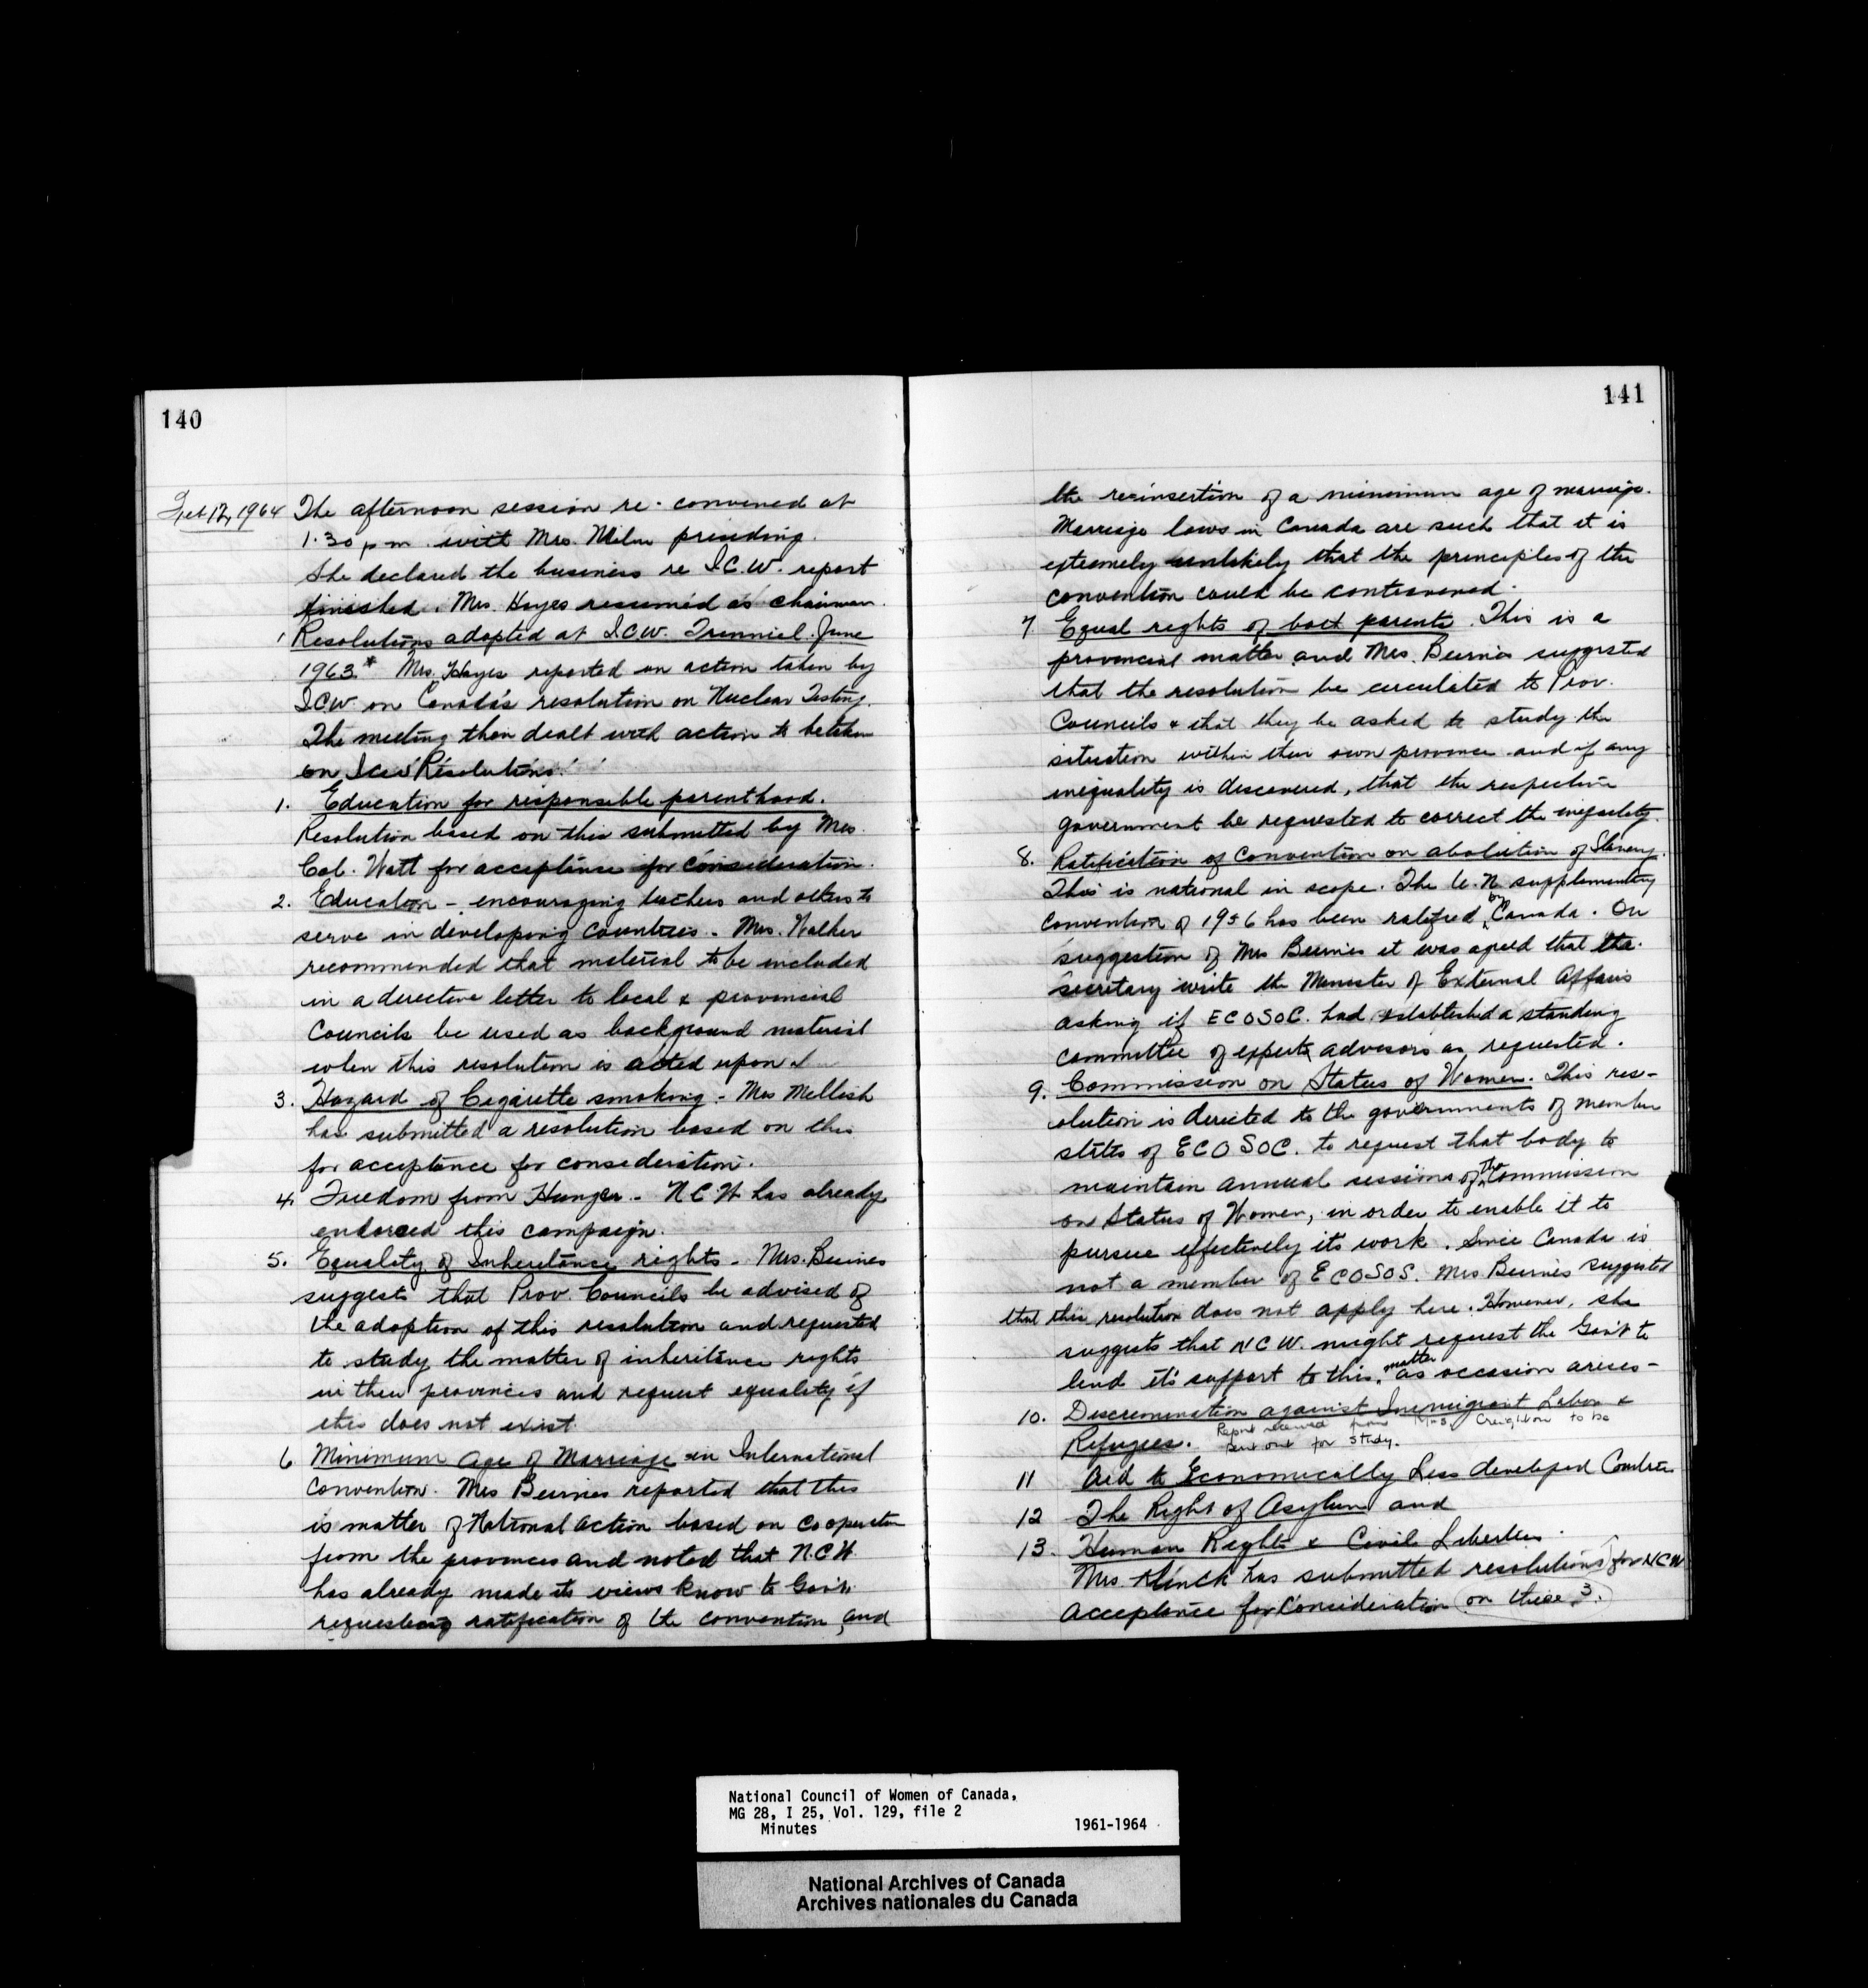 140
Feb 12, 1964 The afternoon session re-convened at
1.30 pm with Mrs. Milne presiding.
She declared the business re I.C.W. report
finished. Mrs. Hayes resumed as chairman.
1 Resolutions adopted at I.C.W. Triennial June
1963.* Mrs. Hayes reported on action taken by
ICW on Canada's resolution on Nuclear Testing.
The meeting then dealt with action to be taken
on Icw Resolutions.
1. Education for responsible parenthood.
Resolution based on this submitted by Mrs.
Cal. Watt for acceptance for consideration.
2. Education - encouraging teachers and others to
serve in developing countries. Mrs. Walker
recommended that material to be included
in a directive letter to local & provincial
Councils be used as background material
when this resolution is acted upon
3. Hazard of Cigarette smoking - Mrs Mellish
has submitted a resolution based on this
for acceptance for consideration.
4. Freedom from Hunger - N.C.W has already
endorsed this campaign.
5. Equality of Inheritance rights - Mrs. Beirnes
suggests that Prov. Councils be advised of
the adoption of this resolution and requested
to study the matter of inheritance rights
in their provinces and request equality if
this does not exist.
6 Minimum Age of Marriage in International
Convention. Mrs Beirnes reported that this
is matter of National action based on cooperation
from the provinces and noted that N.C.W.
has already made its views know to Gov't
requesting ratification of the convention and
141
the reinsertion of a minimum age of marriage.
Marriage laws in Canada are such that it is
extremely unlikely that the principles of the
convention could be contravened.
7. Equal rights of both parents. This is a
provincial matter and Mrs. Beirnes suggested
that the resolution be circulated to Prov.
Councils & that they be asked to study the
situation within their own province and if any
inequality is discovered, that the respective
government be requested to correct the inequality.
8. Ratification of Convention on abolition of Slavery.
This is national in scope. The U.N supplementary
Convention of 1956 has been ratified by Canada. On
suggestion of Mrs Beirnes it was agreed that the
secretary write the Minister of External Affairs
asking if ECOSOC. had established a standing
committee of experts advisors as requested.
9. Commission on Status of Women. This res-
olution is directed to the governments of member
states of ECOSOC. to request that body to
maintain annual sessions of the Commission
on Status of Women, in order to enable it to
pursue effectively its work. Since Canada is
not a member of ECOSOS. Mrs Beirnes suggested
that this resolution does not apply here. However, she
suggests that NCW. might request the Gov't to
lend it's support to this matter as occasion arises -
10. Discrimination against Immigrant Labor &
Refugees. Report received from Mrs. Creighton to be
sent out for study.
11 Aid to Economically Less developed Countries
12 The Right of Asylum and
13. Human Rights & Civil Liberties.
Mrs. Klinck has submitted resolutions for NCW
acceptance for Consideration on these 3.
National Council of Women of Canada,
MG 28, I 25, Vol. 129, file 2
Minutes 1961-1964
National Archives of Canada
Archives nationales du Canada